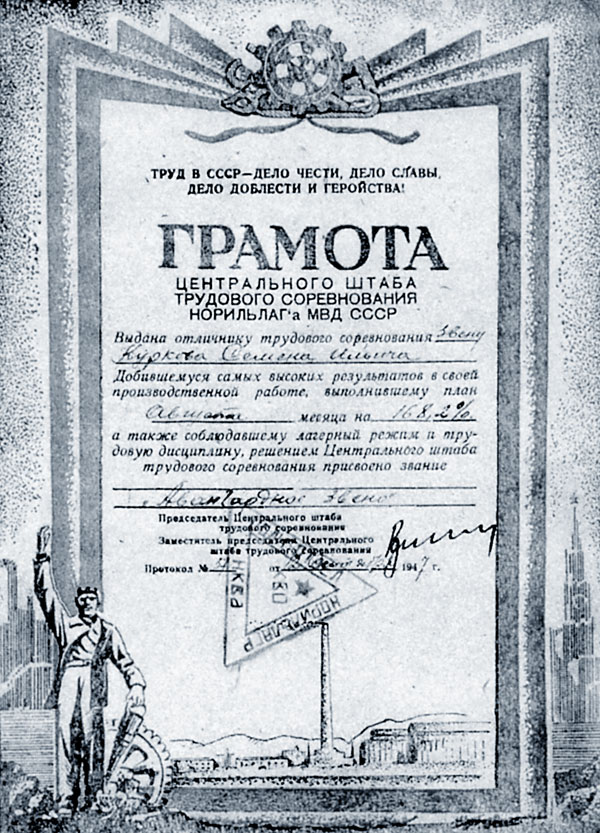 ТРУД В СССР—ДЕЛО ЧЕСТИ, ДЕЛО СЛАВЫ,
ДЕЛО ДОБЛЕСТИ И ГЕРОЙСТВА!
ГРАМОТА
ЦЕНТРАЛЬНОГО ШТАБА
ТРУДОВОГО СОРЕВНОВАНИЯ
НОРИЛЬЛАГ'а МВД СССР
Выдана отличнику трудового соревнования Звену
Куркова Семена Ильича
Добившемуся самых высоких результатов в своей
производственной работе, выполнившему план
Августа месяца на 168,2%
а также соблюдавшему лагерный режим и тру-
довую дисциплину, решением Центрального штаба
трудового соревнования присвоено звание
„Авангардное звено"
Председатель Центрального штаба
трудового соревнования
Заместитель председателя Центрального
штаба трудового соревнования
Протокол № от 1947 г.
НОРИЛЬЛАГР
НКВД